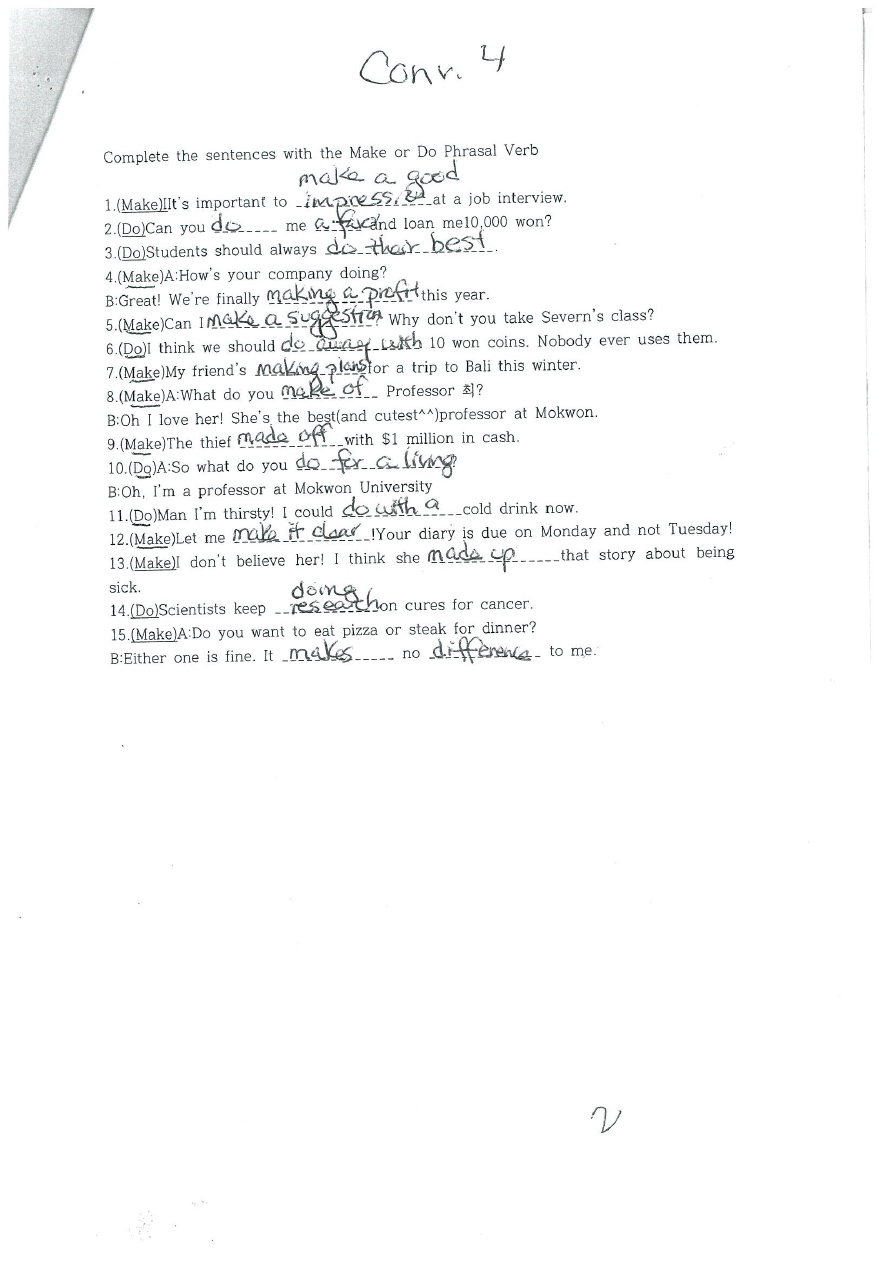 Conv. 4
Complete the sentences with the Make or Do Phrasal Verb
make a good
1.(Make)IIt's important to impression at a job interview.
2.(Do)Can you do me a favor and loan me10,000 won?
3.(Do)Students should always do their best.
4.(Make)A:How's your company doing?
B:Great! We're finally making a profit this year.
5.(Make)Can I make a suggestion? Why don't you take Severn's class?
6.(Do)I think we should do away with 10 won coins. Nobody ever uses them.
7.(Make)My friend's making plans for a trip to Bali this winter.
8.(Make)A:What do you make of Professor 최?
B:Oh I love her! She's the best(and cutest^^)professor at Mokwon.
9.(Make)The thief made off with $1 million in cash.
10.(Do)A:So what do you do for a living?
B:Oh, I'm a professor at Mokwon University
11.(Do)Man I'm thirsty! I could do with a cold drink now.
12.(Make)Let me make it clear!Your diary is due on Monday and not Tuesday!
13.(Make)I don't believe her! I think she made up that story about being
sick.
doing
14.(Do)Scientists keep research on cures for cancer.
15.(Make)A:Do you want to eat pizza or steak for dinner?
B:Either one is fine. It makes no difference to me.
2